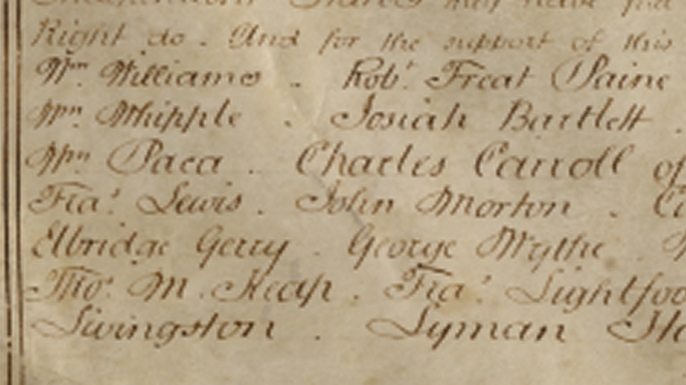 Right do. And for the support of this
Wm. Williams. Robt. Treat Paine
Wm. Whipple. Josiah Bartlett.
Wm. Paca. Charles Carroll of
Fra.s Lewis. John Morton.
Elbridge Gerry. George Wythe.
Tho.s M. Keap. Fra.s Lightfoo
Livingston. Lyman Ha